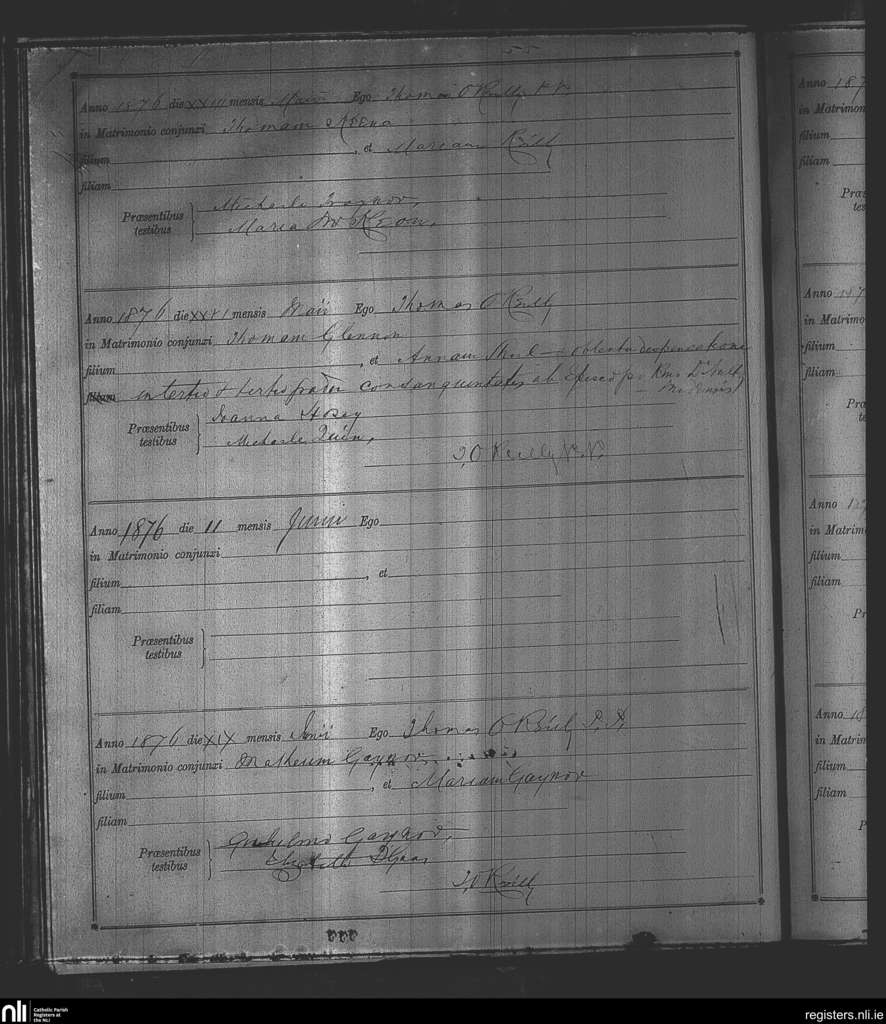 55
Anno 1876 die XXIII mensis Maii Ego Thomas O Reilly P.P.
in Matrimonio conjunxi Thomam
filium , et Mariam Reilly
filiam
Præsentibus testibus Michaele Gaynor,
Maria
Anno 1876 die XXVI mensis Maii Ego Thomas O Reilly
in Matrimonio conjunxi Thomam Glennon
filium , et Annam obtenta dispensatione
filiam in tertio & tertio gradu consanguinitatis ab
Præsentibus testibus Joanna
Michaele Quinn,
T. O Reilly P.P.
Anno 1876 die 11 mensis Junii Ego
in Matrimonio conjunxi
filium , et
filiam
Præsentibus testibus
Anno 1876 die XIX mensis Junii Ego Thomas O Reilly P.P.
in Matrimonio conjunxi Matheum Gaynor
filium , et Mariam Gaynor
filiam
Præsentibus testibus Gulielmo Gaynor,
T. O Reilly
Anno 187
in Matrimon
filium
filiam
Præs
tes
Anno 187
in Matrimo
filium
filiam
Præ
te
Anno
in Matrim
filium
filiam
Pr
Anno
in Matri
filium
filiam
P
nli Catholic Parish
Registers at
the NLI
registers.nli.ie